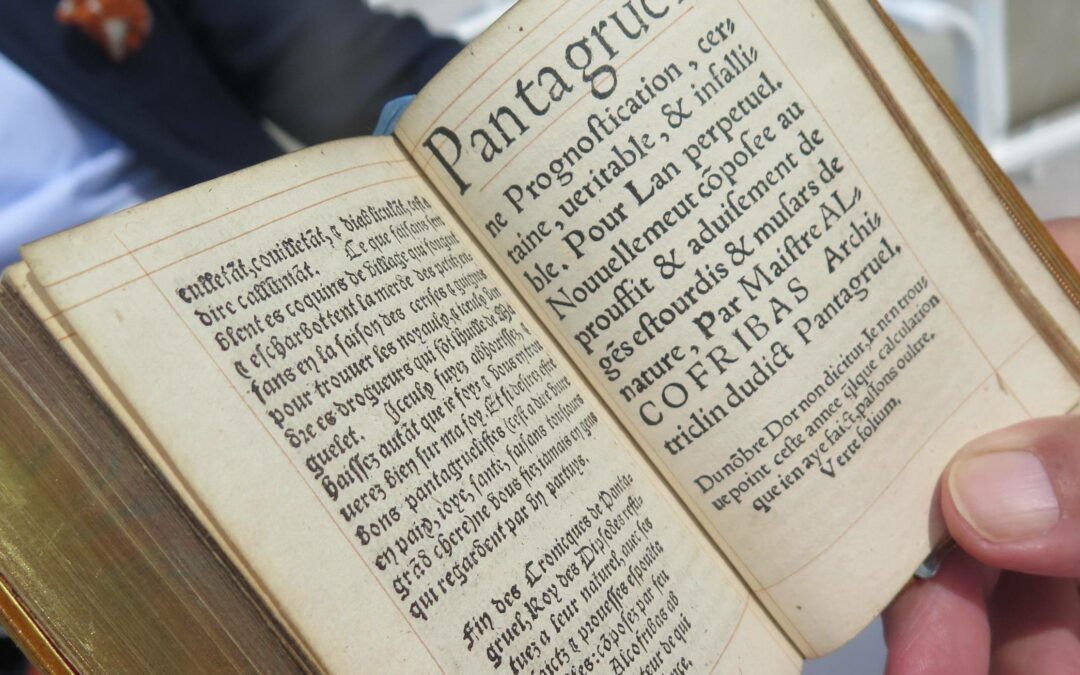 culletãt, couilletãt, & diabliculãt, cest a
dire callũniãt. Ce que faisans sem
blent es coquins de village qui fougent
& escharbottent la merde des petitz en-
fans en la saison des cerises & guignes
pour trouver les noyaulx, & iceulx ven
dre es drogueurs qui fõt lhuille de Ma
guelet. Iceulx fuyez abhorrissez, &
haissez autãt que ie foys & vous en trou
uerez bien sur ma foy. Et si desirez estre
bons pantagruelistes (cest a dire viure
en paix, ioye, sante, faisans tousiours
grãd chere) ne vous fiez iamais en gens
qui regardent par vn partuys.
Fin des Cronicques de Panta-
gruel, Roy des Dipsodes resti-
tuez a leur naturel, auec ses
faictz & prouesses espouẽta
bles: cõposez par feu
Alcofribas ab
teur de qui
Pantagrue
ne Prognostication, cer-
taine, ueritable, & infalli-
ble. Pour Lan perpetuel.
Nouuellement cõposee au
prouffit & aduisement de
gẽs estourdis & musars de
nature, par Maistre AL-
COFRIBAS Archi-
triclin dudict Pantagruel.
Dunõbre Dor non dicitur, Ie nen trou-
ue point ceste annee q̃lque calculation
que ien aye faict, passons oultre.
Verte folium,